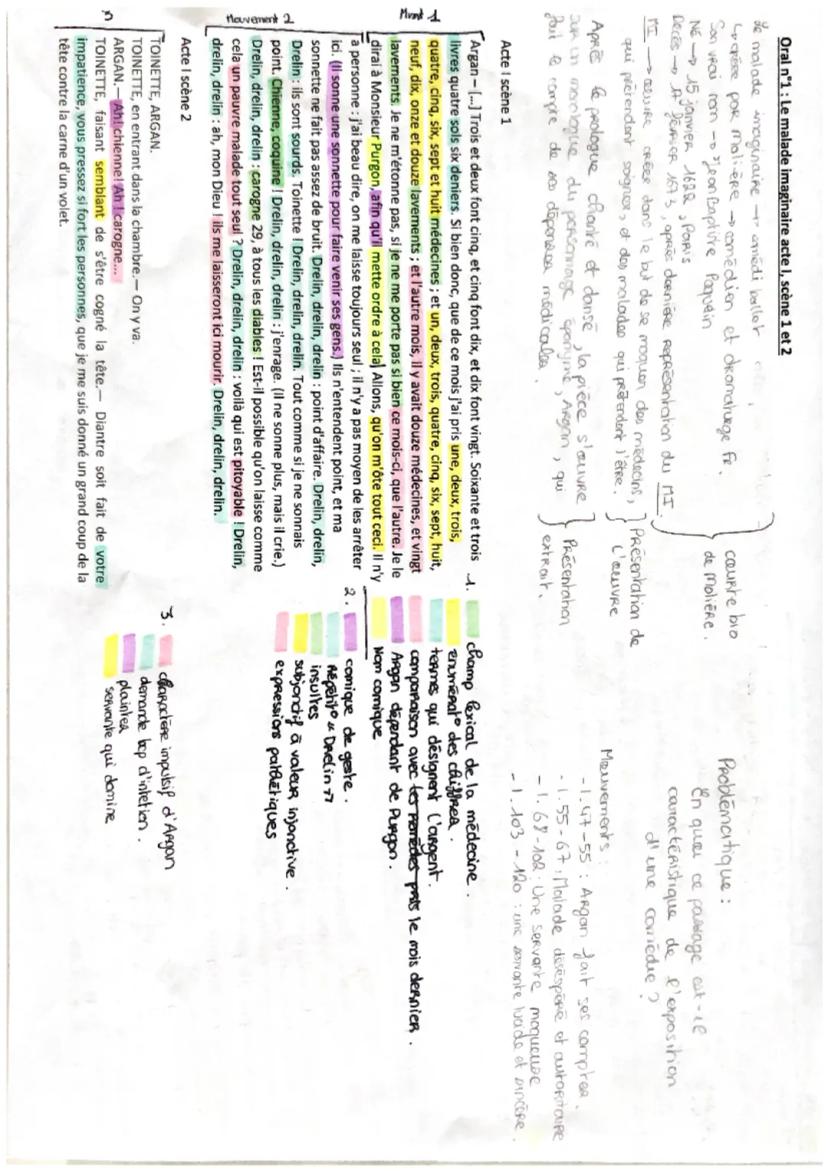 Oral n°1 : Le malade imaginaire acte I, scène 1 et 2
Le malade imaginaire → comédi ballet
↳ créée par Molière → comédien et dramaturge Fr.
Son vrai nom → Jean Baptiste Poquelin
NÉ → 15 janvier 1622, PARIS
Décès → 17 février 1673, après dernière représentation du MI.
courte bio
de Molière.
MI → oeuvre créée dans le but de se moquer des médecins,
qui prétendent soigner, et des malades qui prétendent l'être.
Présentation de
L'oeuvre
Après le prologue chanté et dansé, la pièce s'ouvre
sur un monologue du personnage éponyme, Argan, qui
fait le compte de ses dépenses médicales.
Présentation
extrait.
Problématique :
En quoi ce passage est-il
caractéristique de l'exposition
d'une comédie ?
Mouvements :
- l. 47-55 : Argan fait ses comptes.
- l. 55-67 : Malade désespéré et autoritaire
- l. 68-102 : Une servante moqueuse
- l. 103-120 : une servante lucide et sincère.
Acte I scène 1
Mvmt 1
Argan – (...) Trois et deux font cinq, et cinq font dix, et dix font vingt. Soixante et trois
livres quatre sols six deniers. Si bien donc, que de ce mois j'ai pris une, deux, trois,
quatre, cinq, six, sept et huit médecines ; et un, deux, trois, quatre, cinq, six, sept, huit,
neuf, dix, onze et douze lavements ; et l'autre mois, il y avait douze médecines, et vingt
lavements. Je ne m'étonne pas, si je ne me porte pas si bien ce mois-ci, que l'autre. Je le
dirai à Monsieur Purgon, afin qu'il mette ordre à cela. Allons, qu'on m'ôte tout ceci. Il n'y
Mouvement 2
a personne : j'ai beau dire, on me laisse toujours seul ; il n'y a pas moyen de les arrêter
ici. (Il sonne une sonnette pour faire venir ses gens.) Ils n'entendent point, et ma
sonnette ne fait pas assez de bruit. Drelin, drelin, drelin : point d'affaire. Drelin, drelin,
Drelin : ils sont sourds. Toinette ! Drelin, drelin, drelin. Tout comme si je ne sonnais
point. Chienne, coquine ! Drelin, drelin, drelin : j'enrage. (Il ne sonne plus, mais il crie.)
Drelin, drelin, drelin : carogne 29, à tous les diables ! Est-il possible qu'on laisse comme
cela un pauvre malade tout seul ? Drelin, drelin, drelin : voilà qui est pitoyable ! Drelin,
drelin, drelin : ah, mon Dieu ! ils me laisseront ici mourir. Drelin, drelin, drelin.
1. champ lexical de la médecine.
énumérat° des chiffres.
termes qui désignent l'argent.
comparaison avec les remèdes pris le mois dernier.
Argan dépendant de Purgon.
Nom comique
2. comique de geste.
Répétit° « Drelin »
insultes
subjonctif à valeur injonctive.
expressions pathétiques
Acte I scène 2
3
TOINETTE, ARGAN.
TOINETTE, en entrant dans la chambre.— On y va.
ARGAN.— Ah! chienne! Ah ! carogne...
TOINETTE, faisant semblant de s'être cogné la tête.— Diantre soit fait de votre
impatience, vous pressez si fort les personnes, que je me suis donné un grand coup de la
tête contre la carne d'un volet.
3. charactère impulsif d'Argan
demande
plaintes
servante qui domine